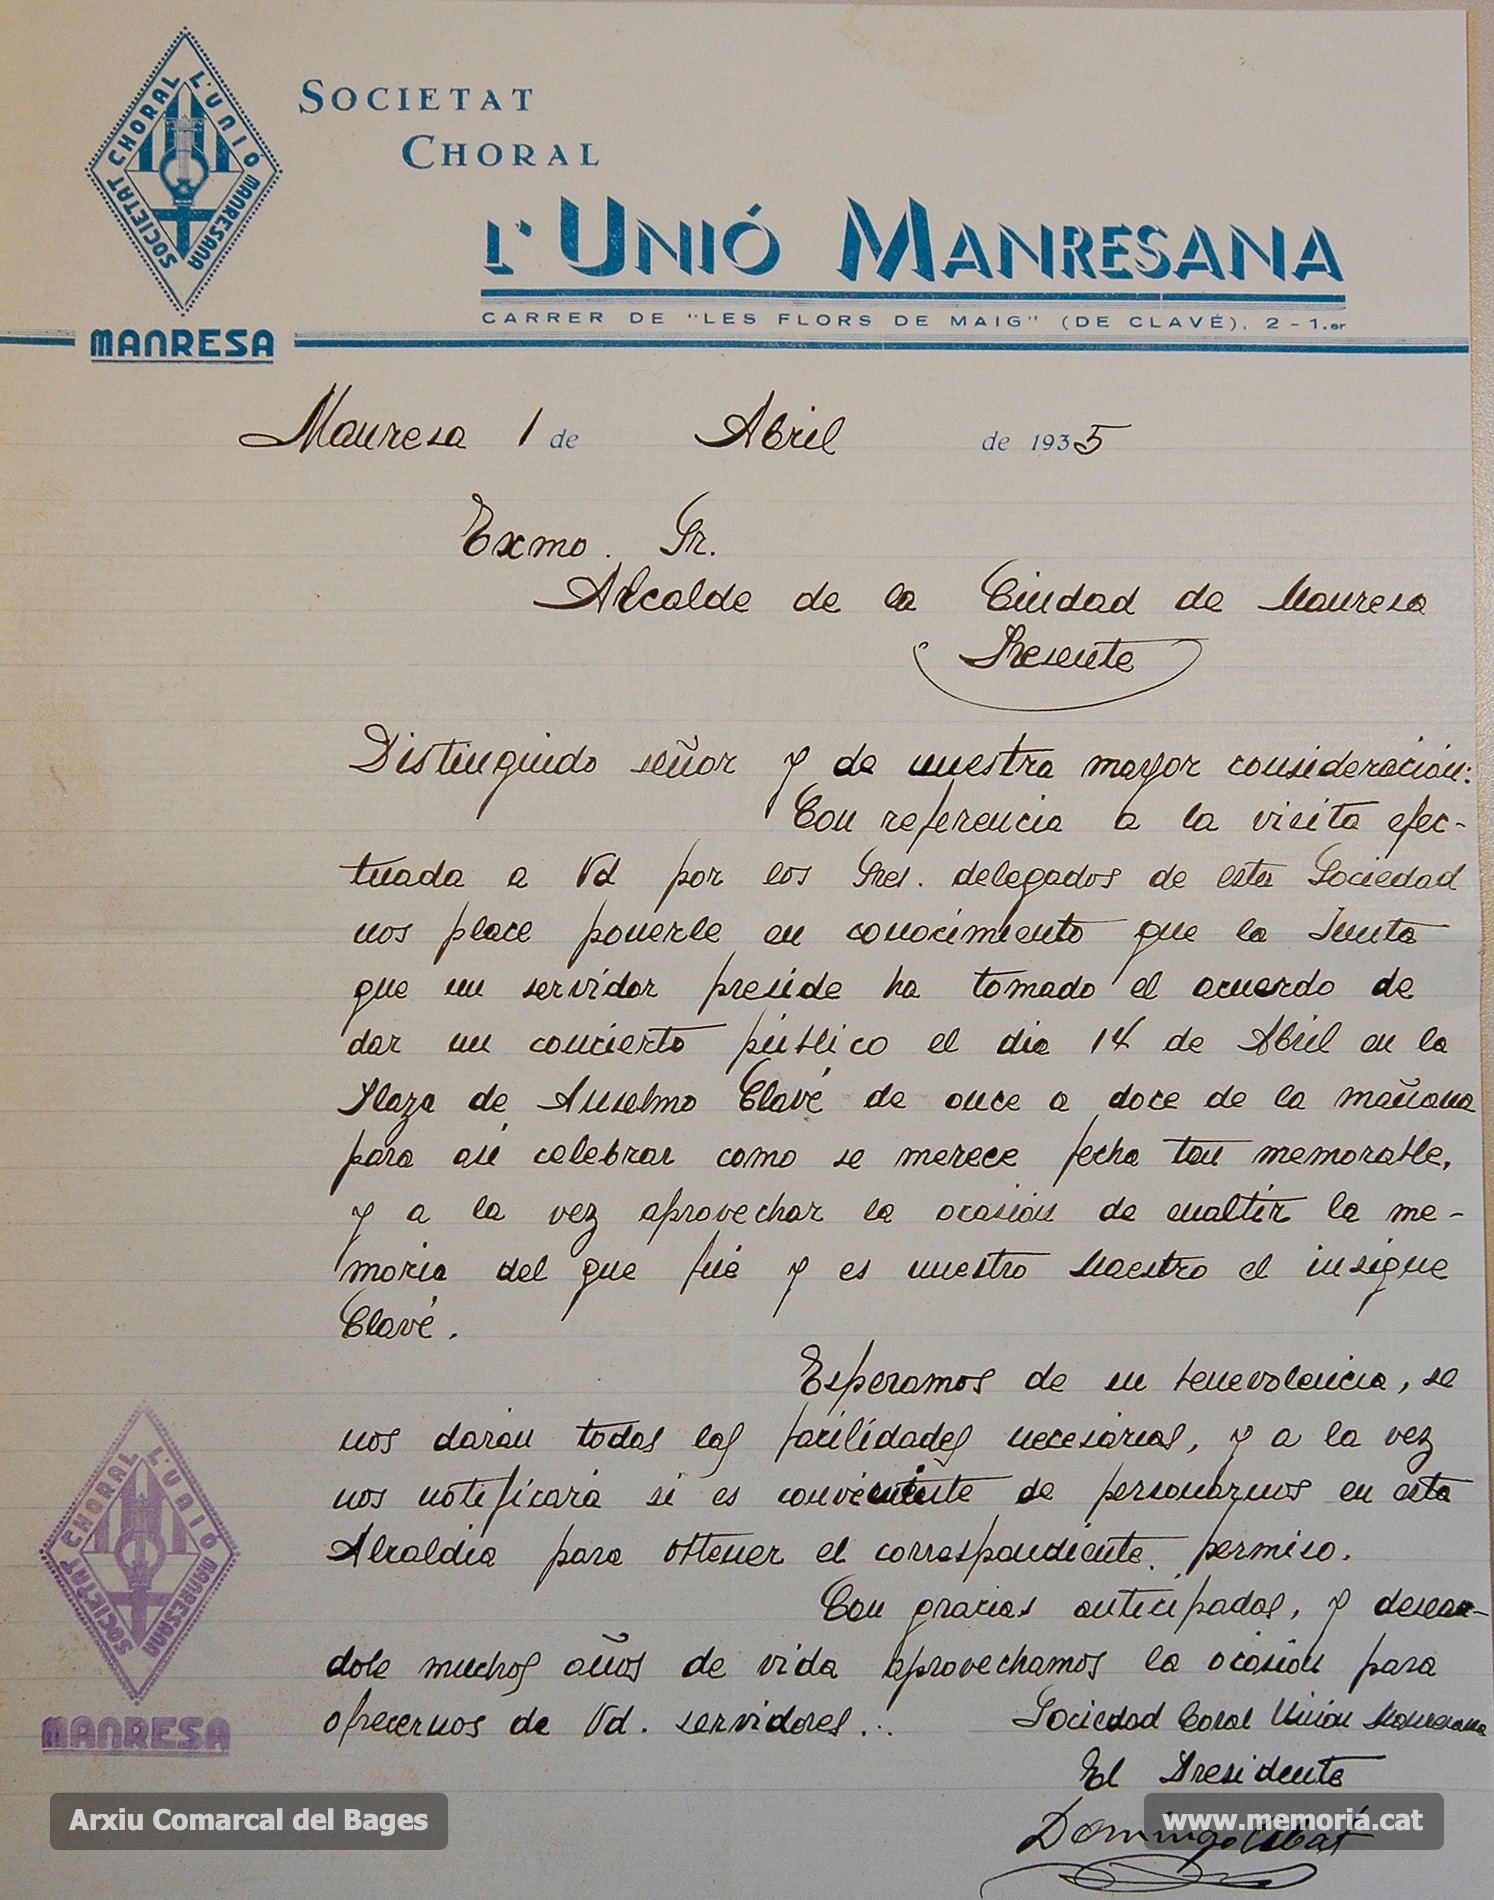 SOCIETAT CHORAL L'UNIÓ MANRESANA
MANRESA
SOCIETAT
CHORAL
L'UNIÓ MANRESANA
CARRER DE "LES FLORS DE MAIG" (DE CLAVÉ), 2 - 1.er
Manresa 1 de Abril de 1935
Exmo. Sr.
Alcalde de la Ciudad de Manresa
Presente
Distinguido señor y de nuestra mayor consideración:
Con referencia a la visita efec-
tuada a Vd por los Sres. delegados de esta Sociedad
nos place ponerle en conocimiento que la Junta
que un servidor preside ha tomado el acuerdo de
dar un concierto público el dia 14 de Abril en la
Plaza de Anselmo Clavé de once a doce de la mañana
para asi celebrar como se merece fecha tan memorable,
y a la vez aprovechar la ocasión de enaltir la me-
moria del que fué y es nuestro Maestro el insigne
Clavé.
Esperamos de su benevolencia, se
nos darán todas las facilidades necesarias, y a la vez
nos notificará si es conveniente de personarnos en esta
Alcaldia para obtener el correspondiente. permiso.
Con gracias anticipadas, y desean-
dole muchos años de vida aprovechamos la ocasión para
ofrecernos de Vd. servidores...
Sociedad Coral Unión Manresana
El Presidente
Domingo Abat
SOCIETAT CHORAL L'UNIÓ MANRESANA
MANRESA
Arxiu Comarcal del Bages
www.memoria.cat